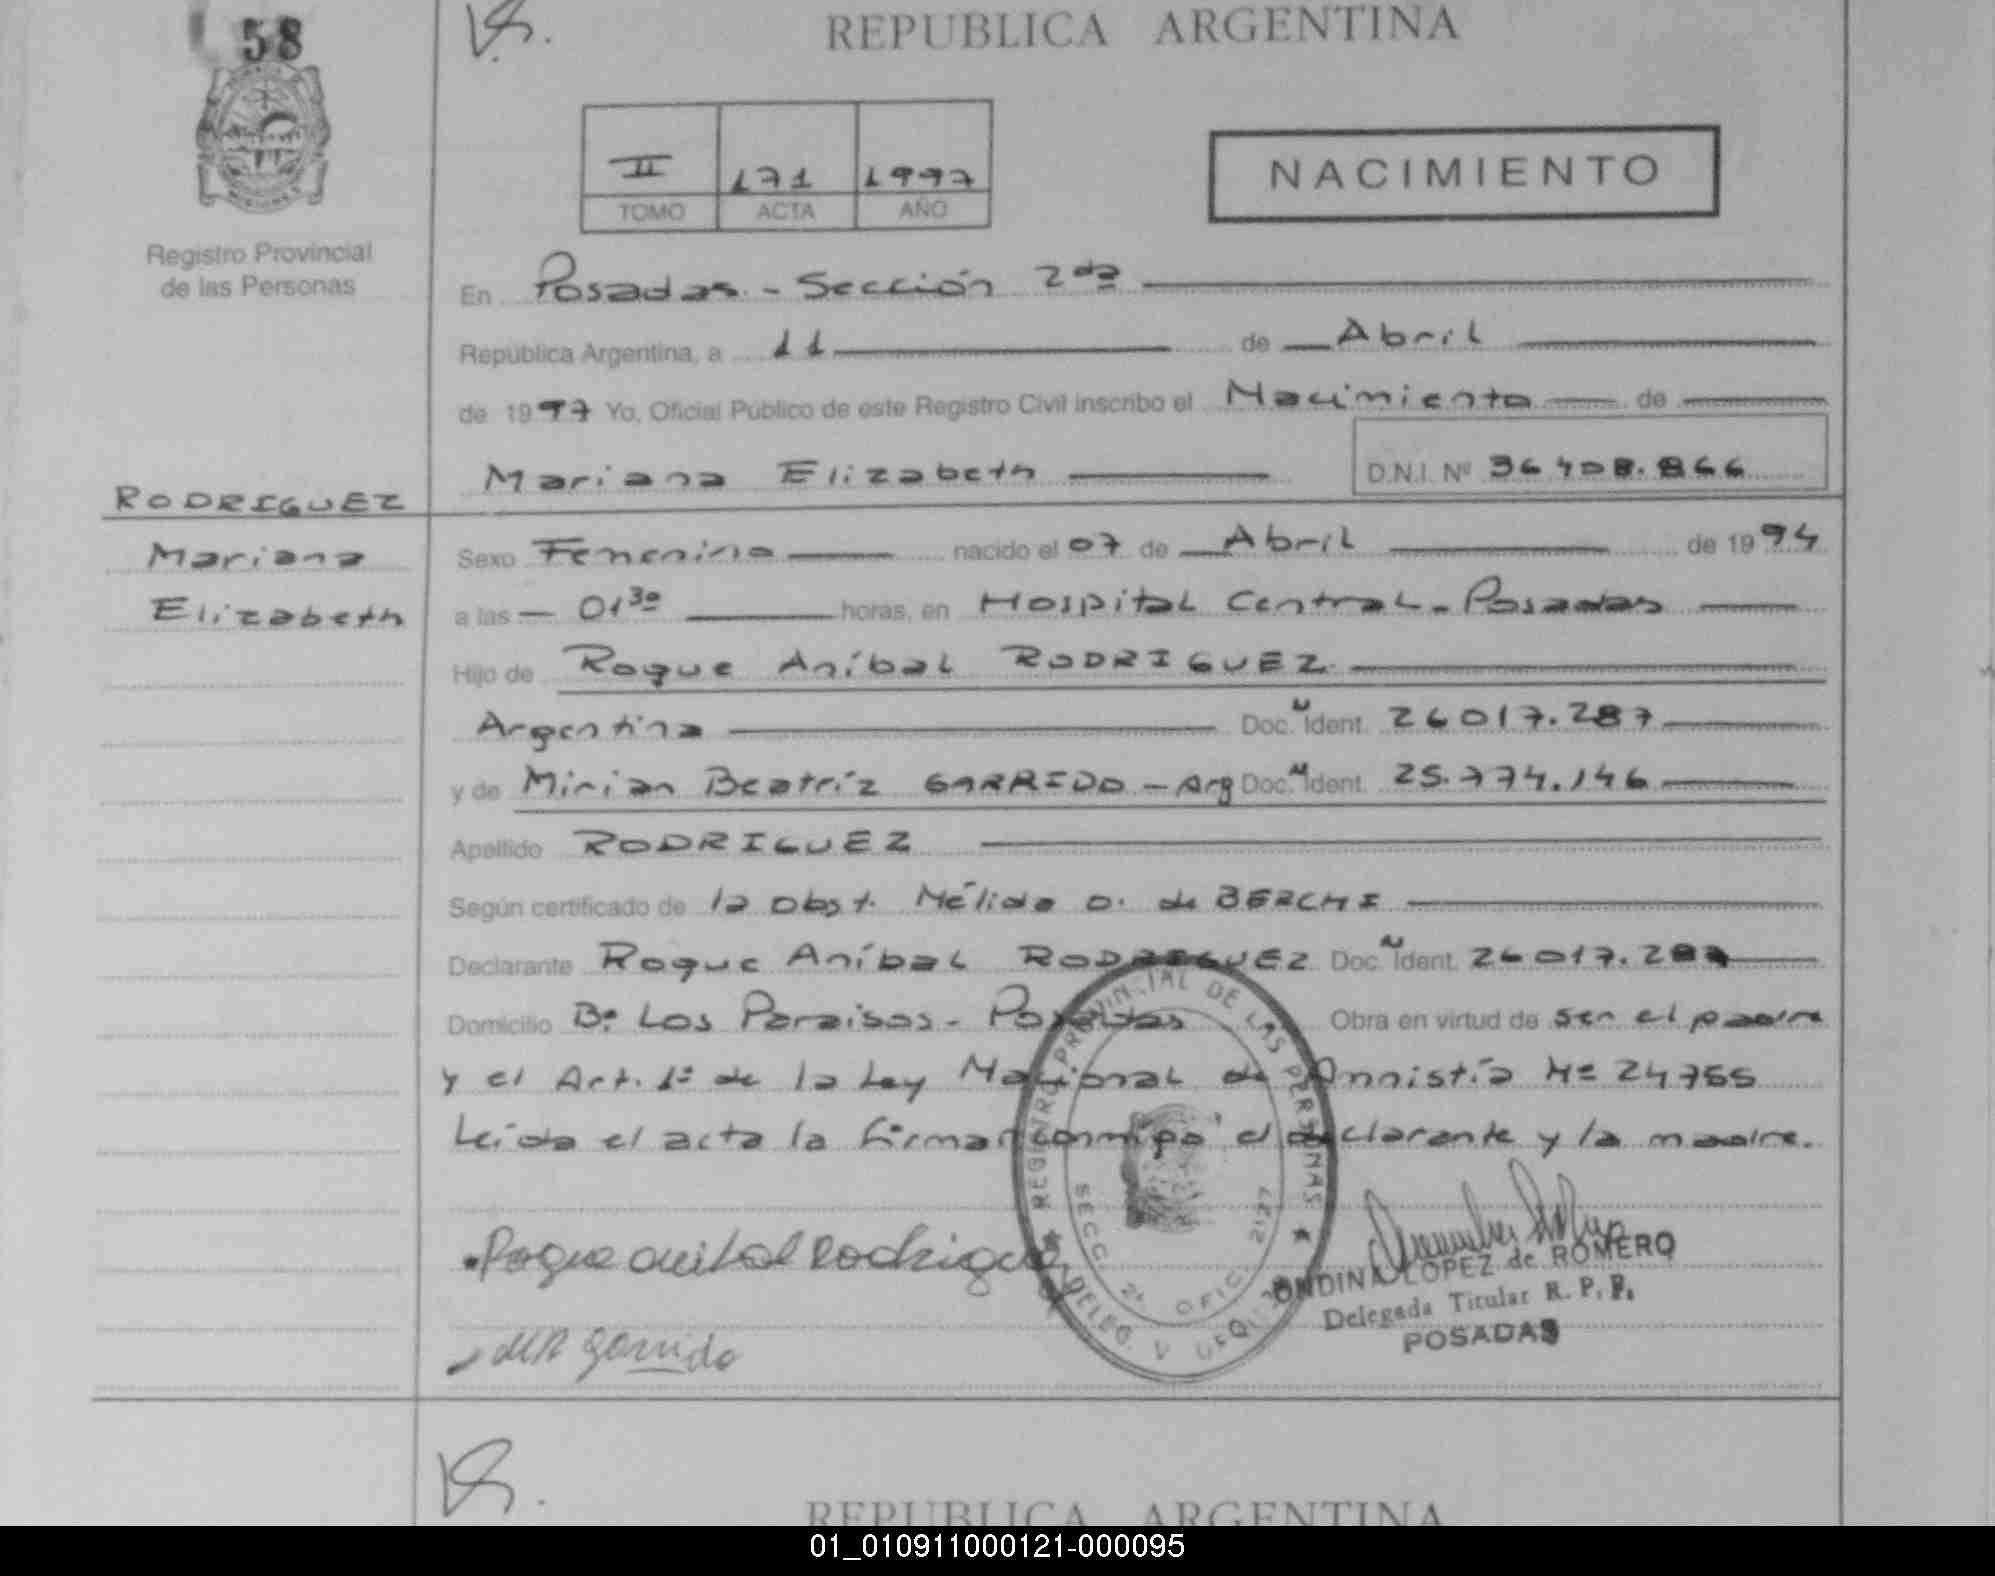 58
REPUBLICA ARGENTINA
II 171 1997
TOMO ACTA AÑO
NACIMIENTO
Registro Provincial
de las Personas
En Posadas - Sección 2da
República Argentina, a 11 de Abril
de 1997 Yo, Oficial Público de este Registro Civil inscribo el Nacimiento de
Mariana Elizabeth D.N.I. Nº 36 408.866
RODRIGUEZ
Mariana
Elizabeth
Sexo Femenino nacido el 07 de Abril de 1994
a las 01 30 horas, en Hospital Central - Posadas
Hijo de Roque Aníbal RODRIGUEZ
Argentina Doc. N Ident. 26017.287
y de Mirian Beatríz GARRIDO - Arg Doc. N Ident. 25.774.146
Apellido RODRIGUEZ
Según certificado de la Obst. Nélida O. de BERCHI
Declarante Roque Aníbal RODRIGUEZ Doc. N Ident. 26017.287
Domicilio Bº Los Paraisos - Posadas Obra en virtud de ser el padre
y el Art. 1º de la Ley Nacional de Amnistía Nº 24755
Leída el acta la firman conmigo el declarante y la madre.
REGISTRO PROVINCIAL DE LAS PERSONAS
SECC. 2ª OFIC. 2127
DELEG.
Roque anibal Rodriguez
MB Garrido
ONDINA LOPEZ de ROMERO
Delegada Titular R. P. P.
POSADAS
REPUBLICA ARGENTINA
01_010911000121-000095